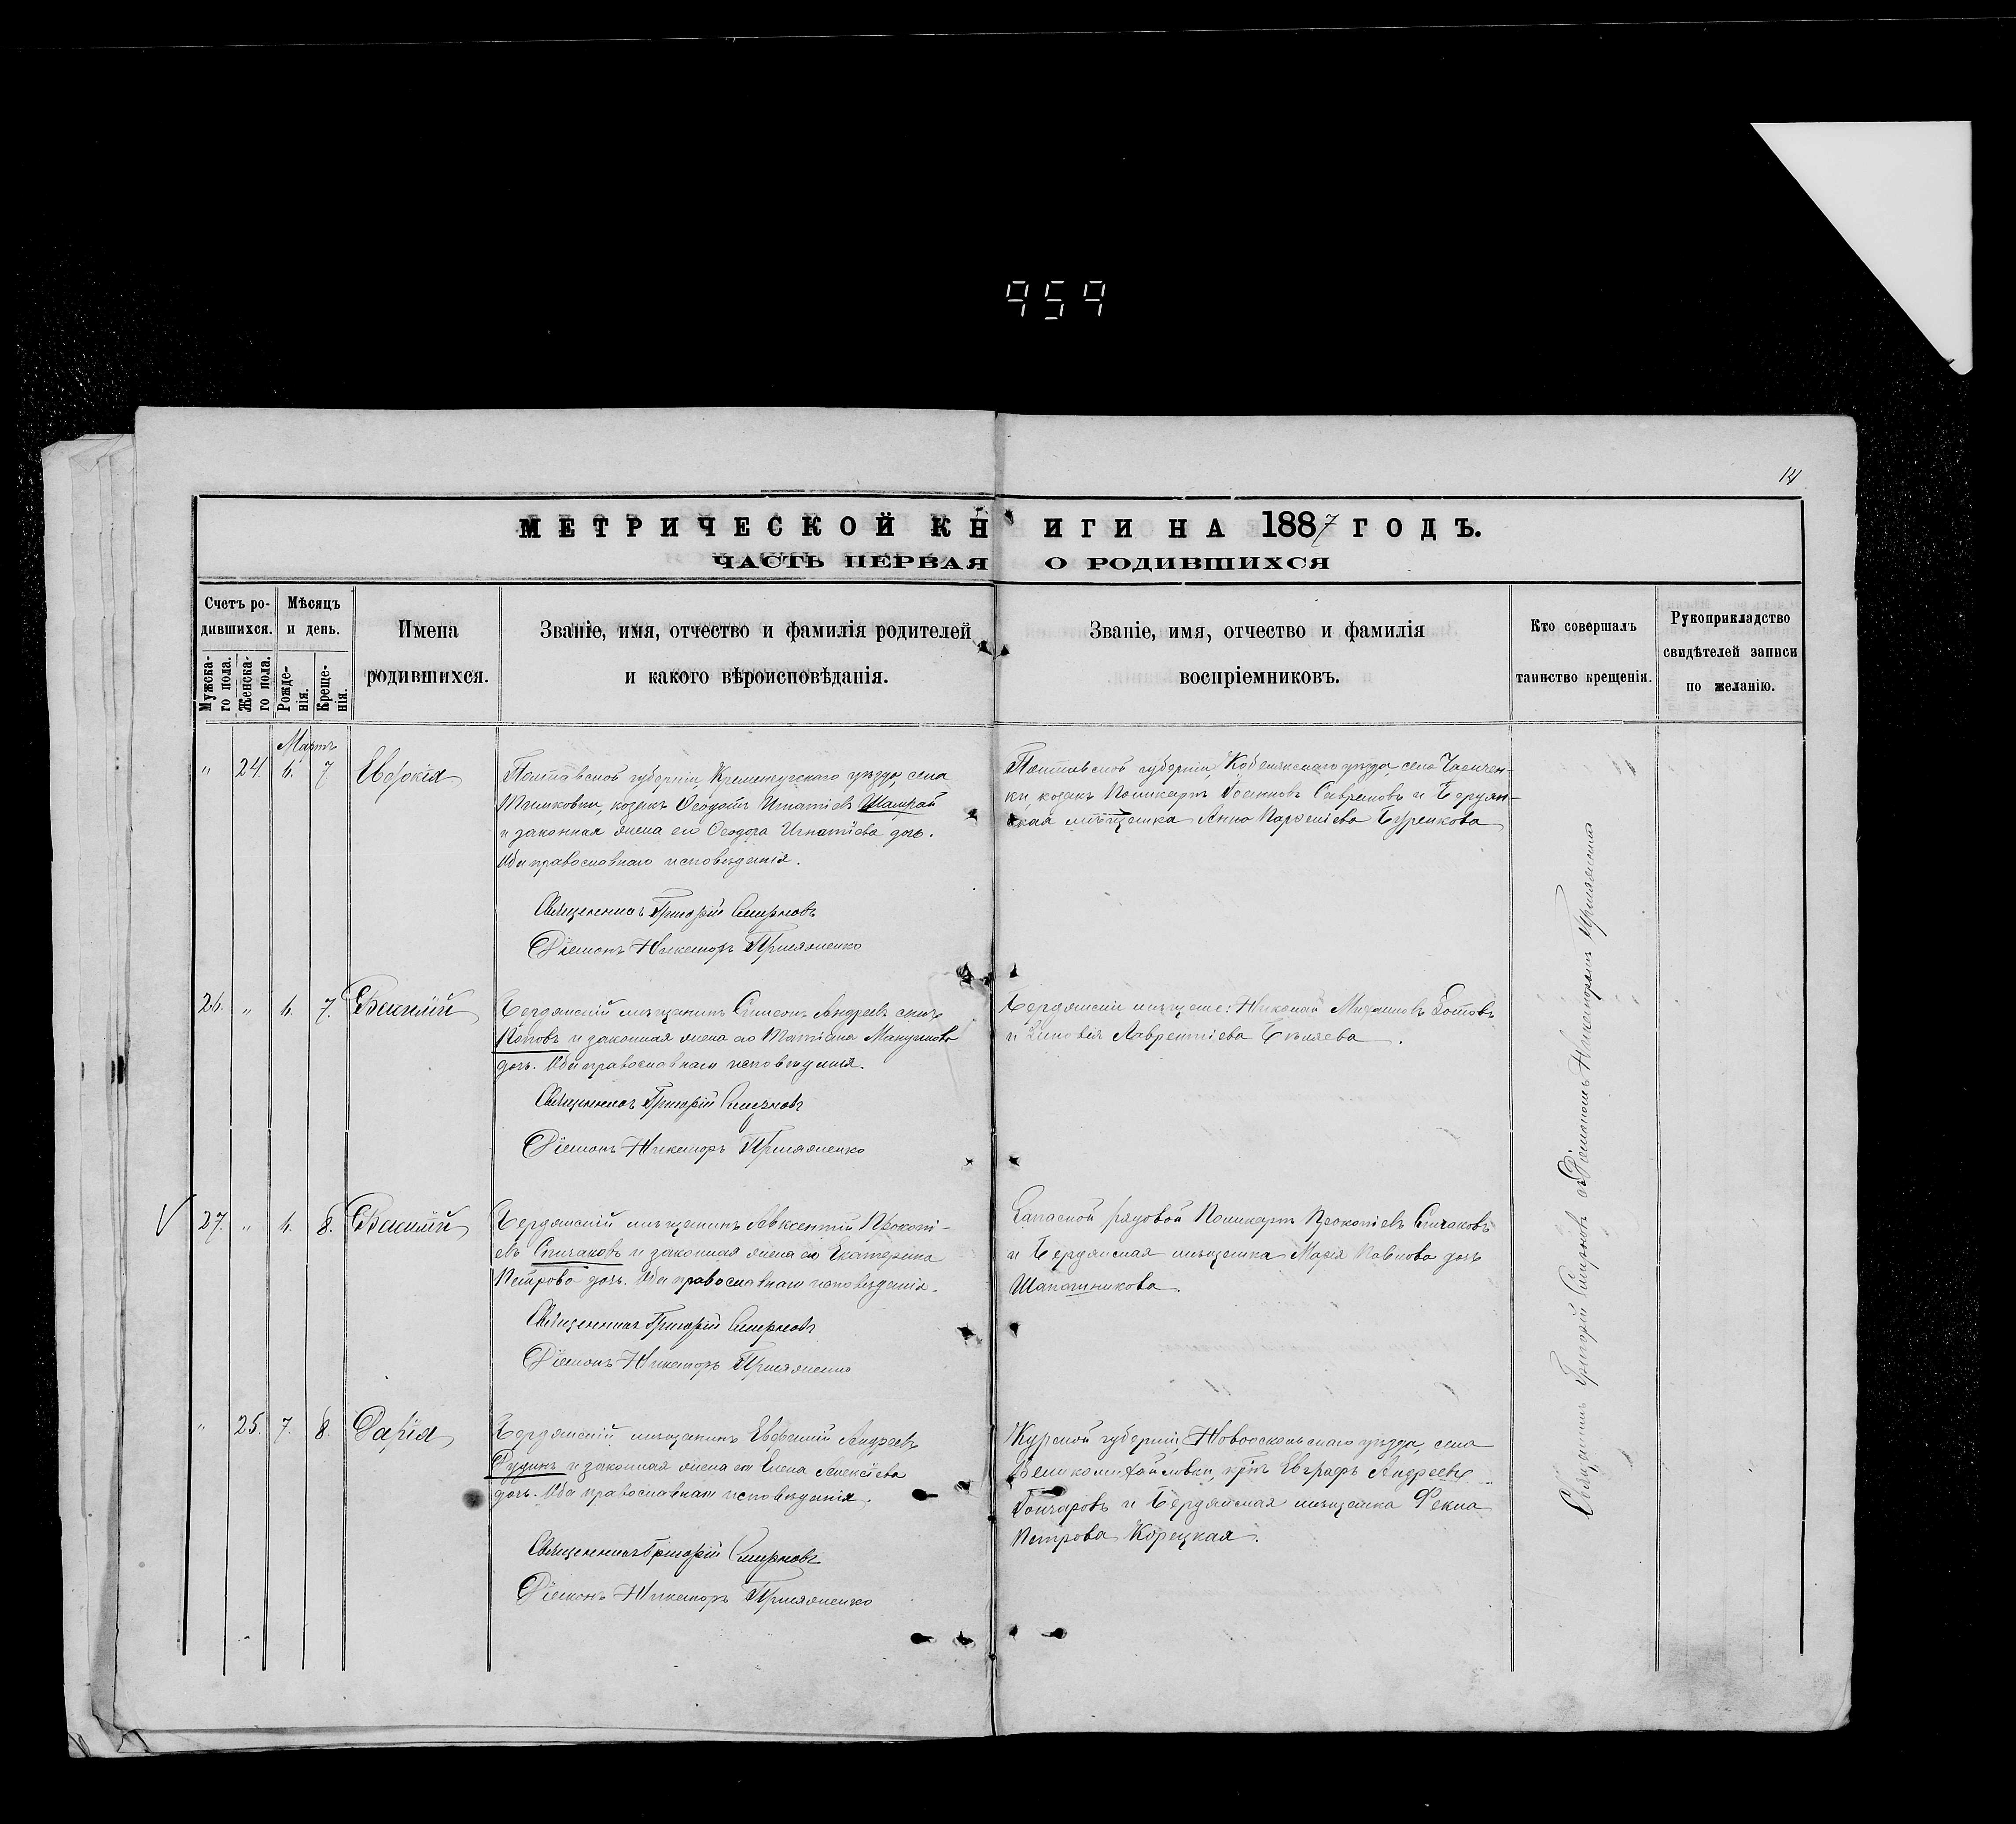 959
14
МЕТРИЧЕСКОЙ КНИГИ НА 1887 ГОДЪ.
ЧАСТЬ ПЕРВАЯ О РОДИВШИХСЯ
Счетъ родившихся.
Мужскаго пола.
Женскаго пола.
Мѣсяцъ и день.
Рожденія.
Крещенія.
Имена
родившихся.
Званіе, имя, отчество и фамилія родителей
и какого вѣроисповѣданія.
Званіе, имя, отчество и фамилія
воспріемниковъ.
Кто совершалъ
таинство крещенія.
Рукоприкладство
свидѣтелей записи
по желанію.
Мартъ
" 24. 6. 7. Евдокія
Полтавской губерніи, Кременчугскаго уѣзда, села
козакъ Ѳеодотъ Игнатіевъ Шамрай
и законная жена его Ѳеодора Игнатіева дочь.
Оба православнаго исповѣданія.
Священникъ Григорій Смирновъ
Діаконъ Никаноръ
Полтавской губерніи, Кобелякскаго уѣзда, села
ки, козакъ Поликарпъ Іоанновъ и Бердян-
ская мѣщанка Анна Парѳеніева
26. " 6. 7. Василій
Бердянскій мѣщанинъ Симеонъ Андреевъ сынъ
Поповъ и законная жена его Татіана
дочь. Оба православнаго исповѣданія.
Священникъ Григорій Смирновъ
Діаконъ Никаноръ
Бердянскіе мѣщане: Николай Михаиловъ Зотовъ
и Зиновія Лаврентіева Бѣляева.
27. " 6. 8. Василій
Бердянскій мѣщанинъ Авксентій Прокопі-
евъ Спичаковъ и законная жена его Екатерина
Петрова дочь. Оба православнаго исповѣданія.
Священникъ Григорій Смирновъ
Діаконъ Никаноръ
Запасной рядовой Поликарпъ Прокопіевъ Спичаковъ
и Бердянская мѣщанка Марія Павлова дочь
Шапошникова
" 25. 7. 8. Дарія
Бердянскій мѣщанинъ Евѳимій Андреевъ
и законная жена его Елена Алексіева
дочь. Оба православнаго исповѣданія.
Священникъ Григорій Смирновъ
Діаконъ Никаноръ
Курской губерніи, Новооскольскаго уѣзда, села
Великомихайловки, крест. Евграфъ Андреевъ
Гончаровъ и Бердянская мѣщанка Ѳекла
Петрова Корецкая.
Священникъ Григорій Смирновъ съ Діакономъ Никаноромъ